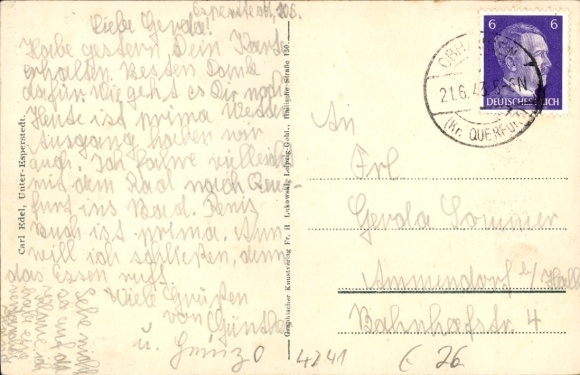 Esperstedt, 20.6.
Liebe Gerda!
Habe gestern Dein Karte
erhalten. Besten Dank
dafür. Wie geht es Dir noch
Heute ist prima Wetter
Ausgang haben wir
auch. Ich fahre vielleicht
mit dem Rad nach Quer-
furt ins Bad.
Buch ist prima. Nun
will ich schließen, denn
das Essen ruft.
Viele Grüßen
von Günther
u.
Carl Edel, Unter-Esperstedt.
Graphischer Kunstverlag Fr. H. Lukowski, Leipzig-Gohl., Hallische Straße 150
6 6
DEUTSCHES REICH
21.6.43
(Kr. QUERFURT)
An
Frl
Gerda Sommer
Ammendorf b/Halle
Bahnhofstr. 4
4241
26